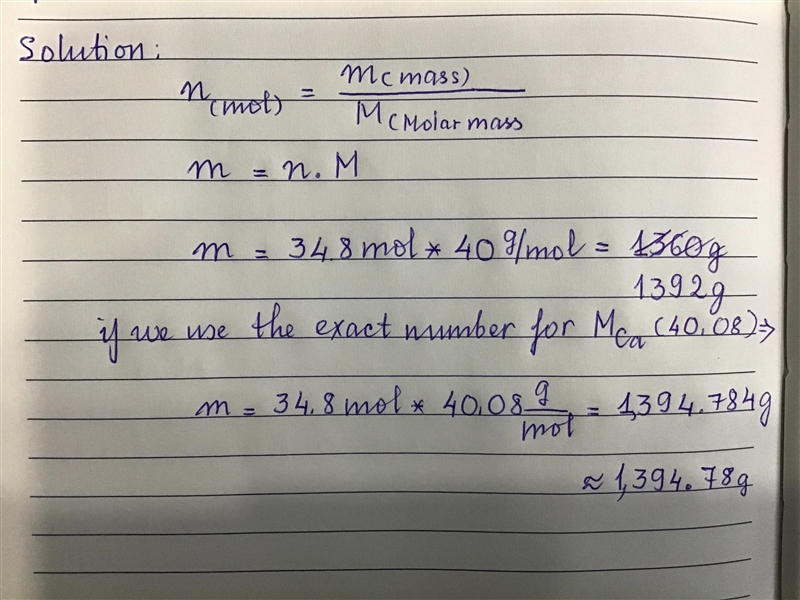 Solution:
n(mol) = m(mass) / M(Molar mass
m = n.M
m = 34.8 mol * 40 g/mol = 1360g
1392g
if we use the exact number for MCa (40.08) ⇒
m = 34.8 mol * 40.08 g/mol = 1,394.784g
≈ 1,394.78g